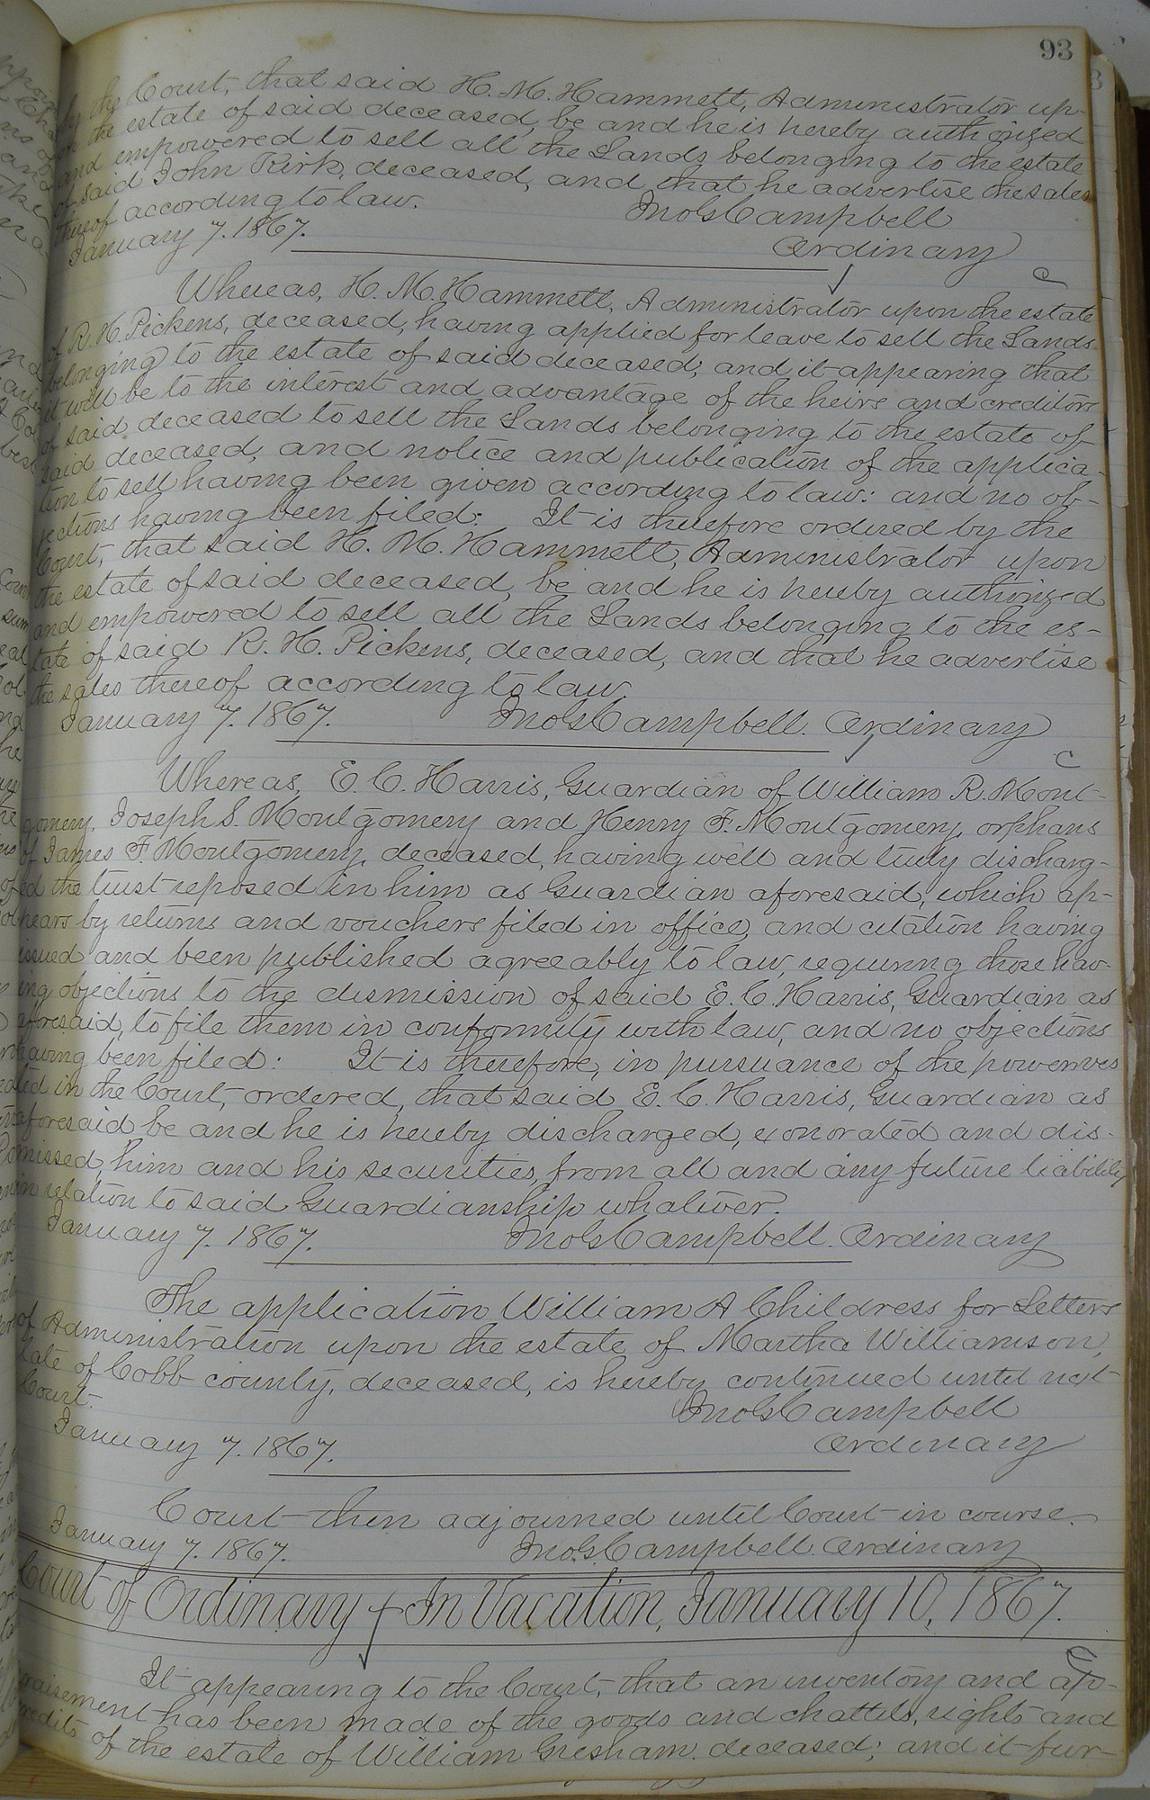 93
by the Court, that said H. M. Hammett, Administrator up-
on the estate of said deceased, be and he is hereby authorized
and empowered to sell all the Lands belonging to the estate
of said John Kirk, deceased, and that he advertise the sales
thereof according to law. Jno G Campbell
January 7. 1867. Ordinary
Whereas, H. M. Hammett, Administrator upon the estate
of R. H. Pickens, deceased, having applied for leave to sell the Lands
belonging to the estate of said deceased; and it appearing that
it will be to the interest and advantage of the heirs and creditors
of said deceased to sell the Lands belonging to the estate of
said deceased; and notice and publication of the applica-
tion to sell having been given according to law: and no ob-
jections having been filed: It is therefore ordered by the
Court, that said H. M. Hammett, Administrator upon
the estate of said deceased, be and he is hereby authorized
and empowered to sell all the Lands belonging to the es-
tate of said R. H. Pickens, deceased, and that he advertise
the sales thereof according to law.
January 7. 1867. Jno G Campbell. Ordinary
Whereas, E. C. Harris, Guardian of William R. Mont-
gomery, Joseph S. Montgomery and Henry F. Montgomery, orphans
of James F. Montgomery, deceased, having well and truly discharg-
ed the trust reposed in him as Guardian aforesaid, which ap-
pears by returns and vouchers filed in office, and citation having
issued and been published agreeably to law, requiring those hav-
ing objections to the dismission of said E. C. Harris, Guardian as
aforesaid, to file them in conformity with law, and no objections
having been filed: It is therefore, in pursuance of the power ves
ted in the Court, ordered, that said E. C. Harris, Guardian as
aforesaid be and he is hereby discharged, exonorated and dis-
missed, him and his securities, from all and any future liability
in relation to said Guardianship whatever.
January 7. 1867. Jno G Campbell. Ordinary
The application William A Childress for Letters
of Administration upon the estate of Martha Williamson,
late of Cobb county, deceased, is hereby continued until next
Court. Jno G Campbell
January 7. 1867. Ordinary
Court then adjourned until Court in course.
January 7. 1867. Jno. G. Campbell. Ordinary
Court of Ordinary In Vacation, January 10, 1867.
It appearing to the Court, that an inventory and ap-
praisement has been made of the goods and chattels, rights and
credits of the estate of William Gresham, deceased; and it fur-